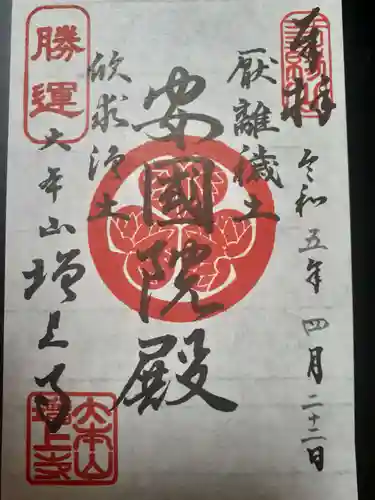 奉拝
令和五年四月二十二日
厭離穢土
安國院殿
欣求浄土
勝運
大本山増上寺
大本山
増上寺